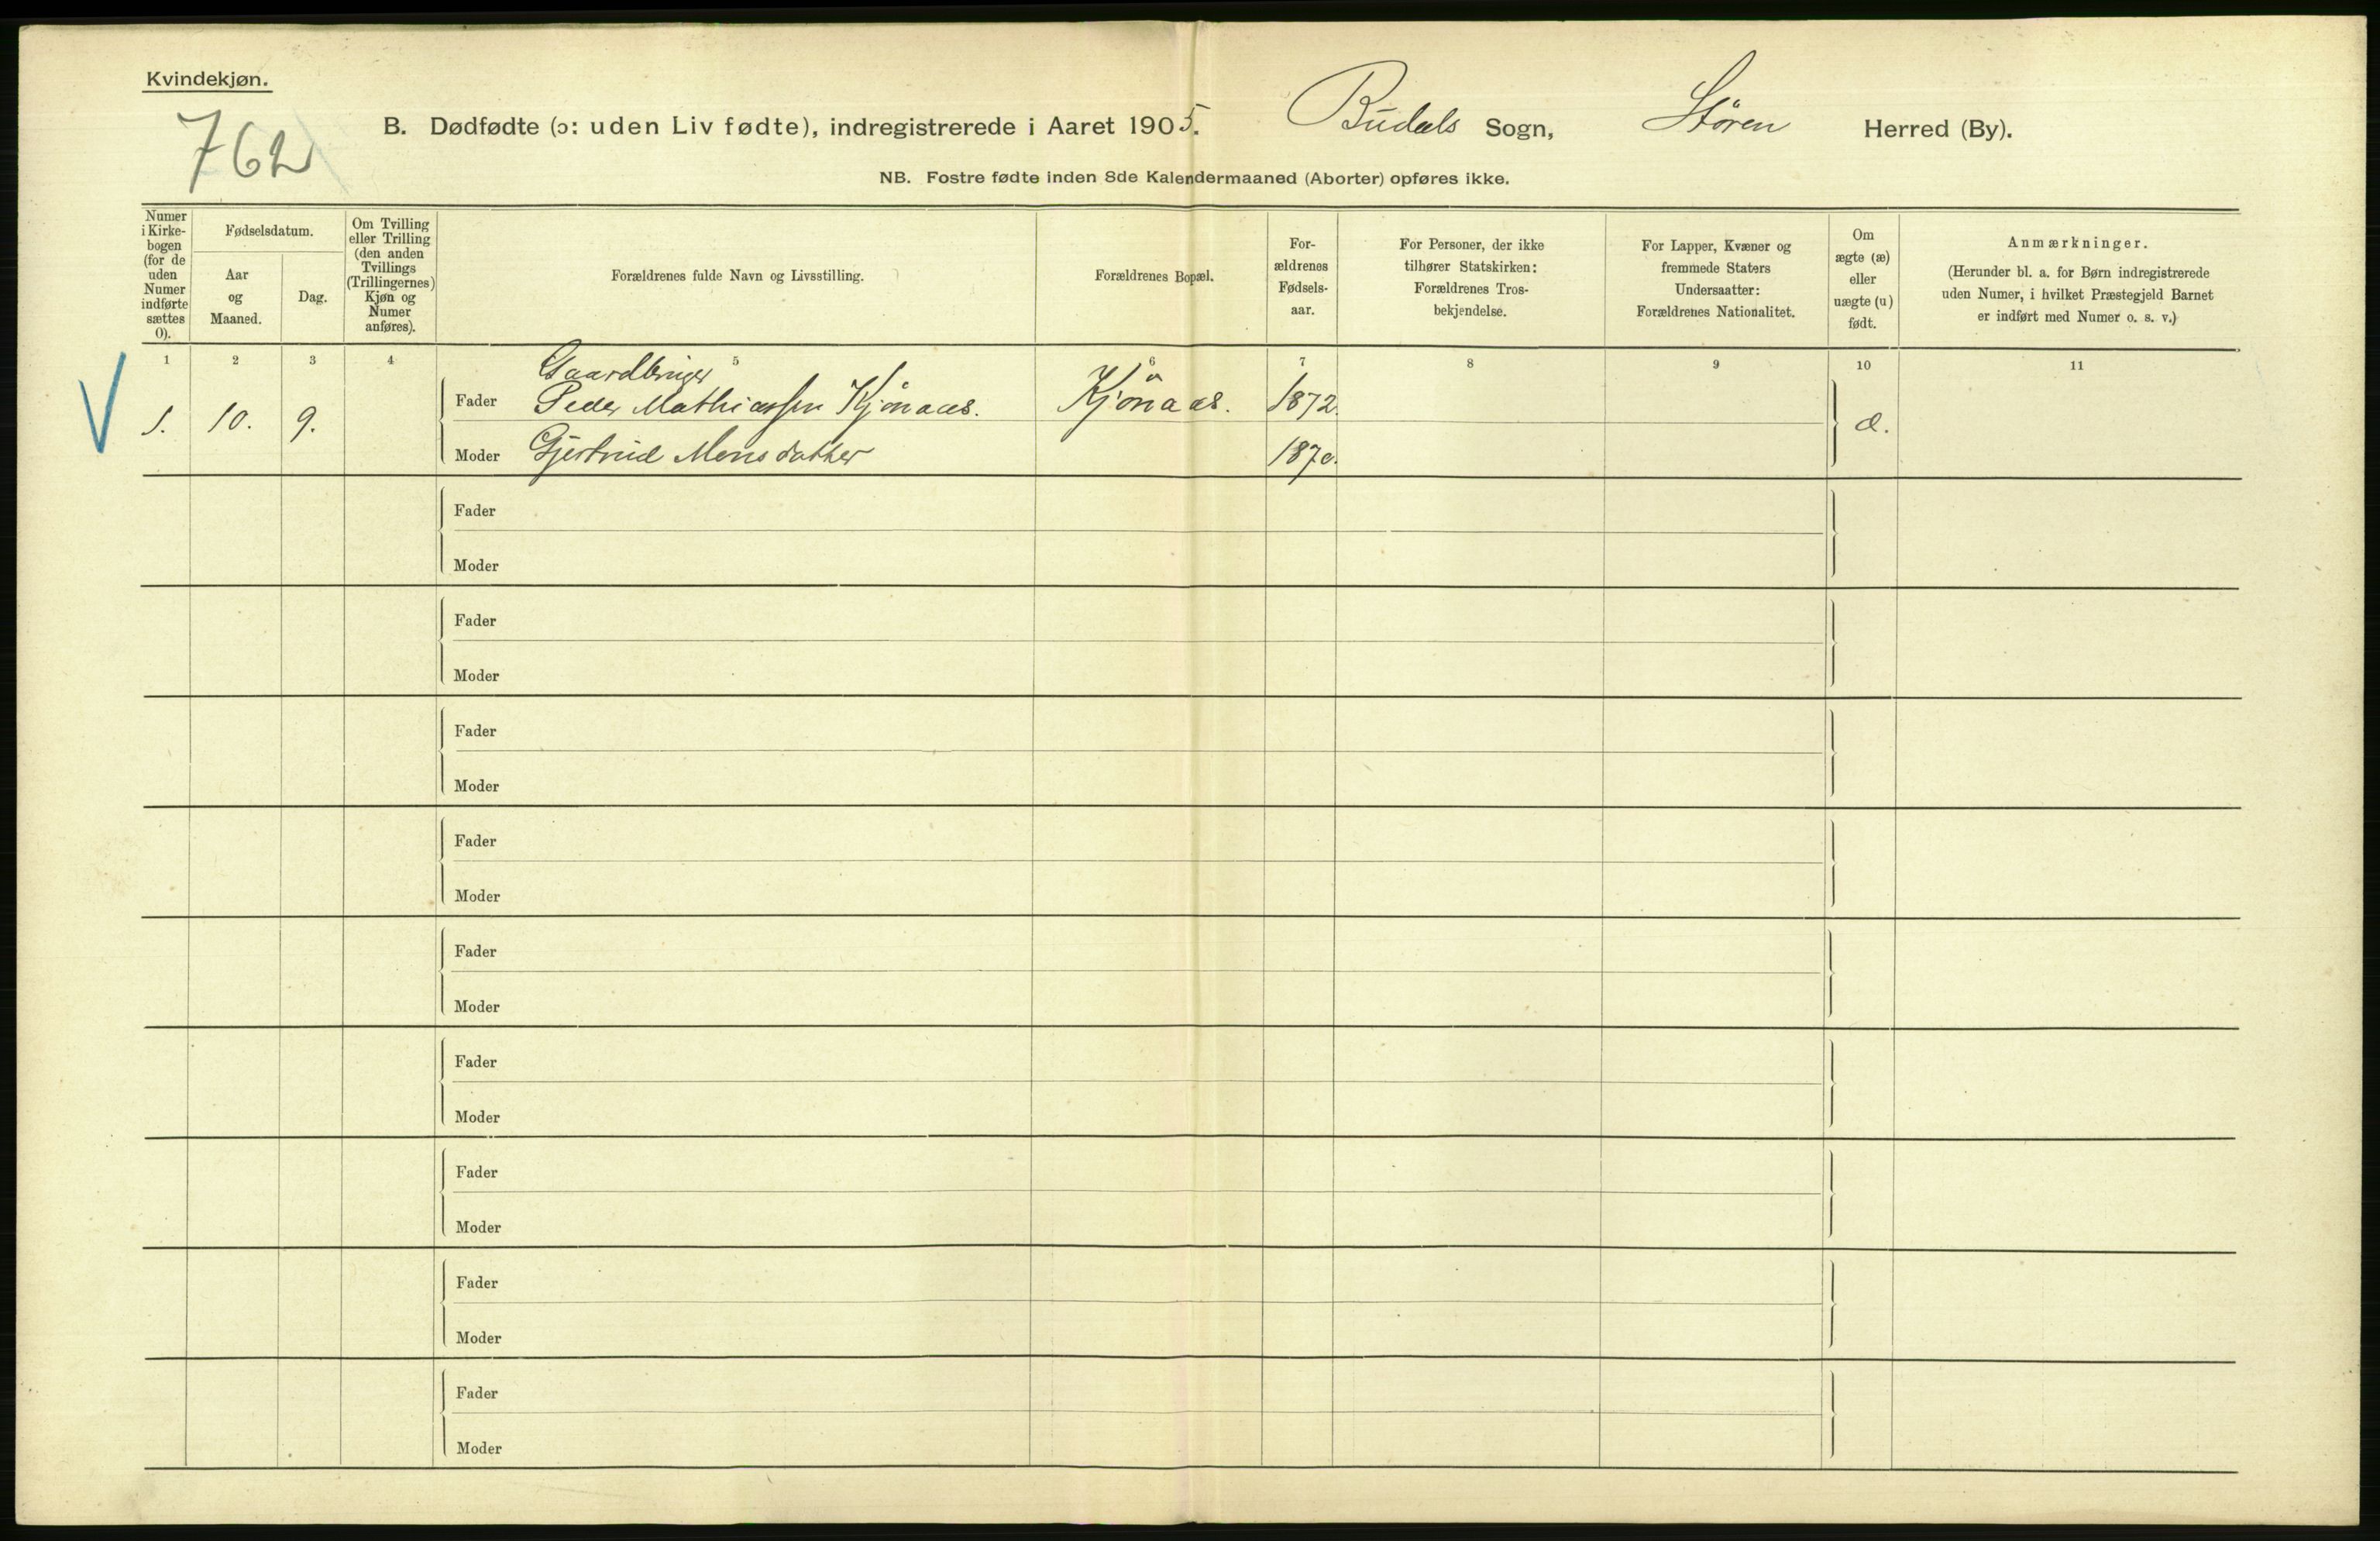 Kvindekjøn.
762
B. Dødfødte (ɔ: uden Liv fødte), indregistrerede i Aaret 1905. Budals Sogn, Støren Herred (By).
NB. Fostre fødte inden 8de Kalendermaaned (Aborter) opføres ikke.
Numer i Kirke-bogen (for de uden Numer indførte sættes 0).
Fødselsdatum.
Aar og Maaned.
Dag.
Om Tvilling eller Trilling (den anden Tvillings (Trillingernes) Kjøn og Numer anføres).
Forældrenes fulde Navn og Livsstilling.
Forældrenes Bopæl.
For-ældrenes Fødsels-aar.
For Personer, der ikke tilhører Statskirken: Forældrenes Tros-bekjendelse.
For Lapper, Kvæner og fremmede Staters Undersaatter: Forældrenes Nationalitet.
Om ægte (æ) eller uægte (u) født.
Anmærkninger.
(Herunder bl. a. for Børn indregistrerede uden Numer, i hvilket Præstegjeld Barnet er indført med Numer o. s. v.)
1 2 3 4 5 6 7 8 9 10 11
Gaardbruger
V 1. 10. 9. Fader Peder Mathiassen Kjønaas. Kjønaas. 1872. æ.
Moder Gjertrud Monsdatter 1870.
Fader
Moder
Fader
Moder
Fader
Moder
Fader
Moder
Fader
Moder
Fader
Moder
Fader
Moder
Fader
Moder
Fader
Moder